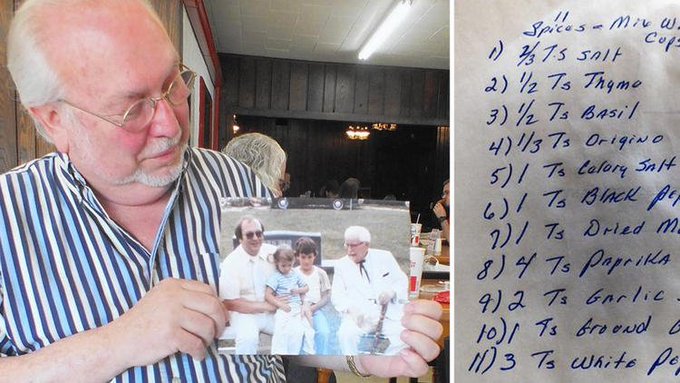 11
Spices - Mix W
Cups
1) 2/3 Ts Salt
2) 1/2 Ts Thyme
3) 1/2 Ts Basil
4) 1/3 Ts Origino
5) 1 Ts Celary Salt
6) 1 Ts Black Pep
7) 1 Ts Dried M
8) 4 Ts Paprika
9) 2 Ts Garlic
10) 1 Ts Ground G
11) 3 Ts White Pep